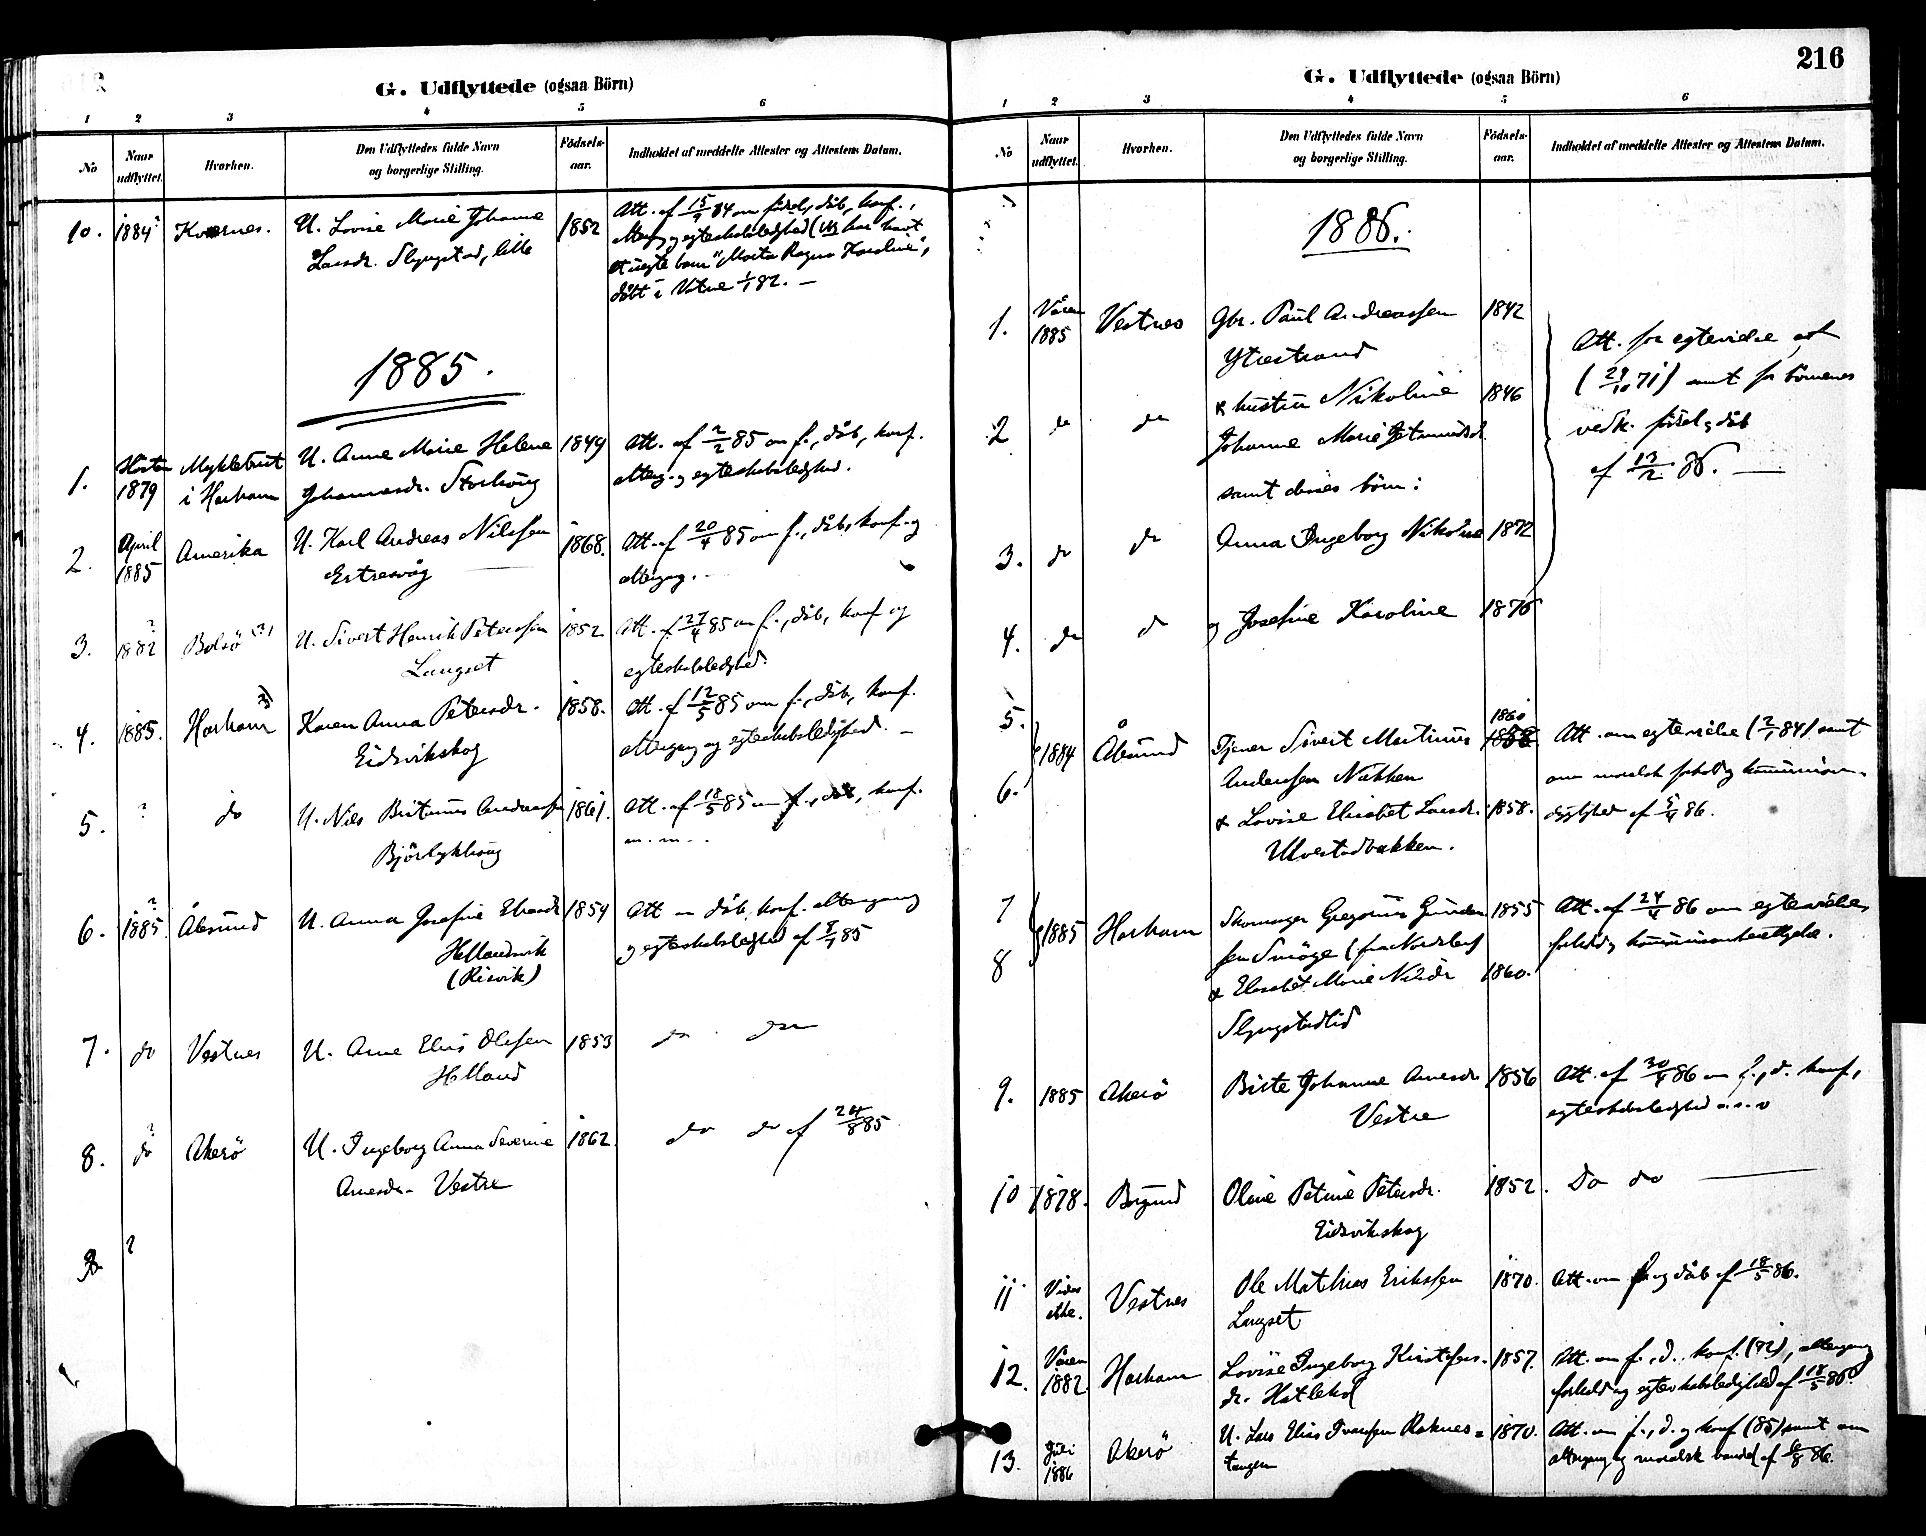 216
G. Udflyttede (ogsaa Börn)
1 2 3 4 5 6
No
Naar udflyttet.
Hvorhen.
Den Udflyttedes fulde Navn
og borgerlige Stilling.
Födsels-
aar.
Indholdet af meddelte Attester og Attestens Datum.
10. 1884 Kvernes. U. Lovise Marie Johanne 1852 Att. af 15/ 84 om födsel, dåb, konf.,
Larsdr. Slyngstad, lille
altergg. og egteskabsledighed (har havt
et uegte barn "Marta Ragna Karoline",
döbt i Vatne 1/1 82. —
1885.
1. Hösten 1879 Myklebust i Harham U. Anne Marie Helene 1849 Att. af 2/2 85 om f., dåb, konf.
Johannesdr. Storhaug
alterg. og egteskabsledighed.
2. April 1885 Amerika U. Karl Andreas Nilssen 1868. Att. af 20/4 85 om f., dåb, konf. og
Estrevåg
altergang.
3. 1882 ? Bolsö U. Sivert Henrik Peterssen 1852 Att. af 27/4 85 om f., dåb, konf og
Langset
egteskabsledighed.
4. 1885. Harham Karen Anna Petersdr. 1858. Att. af 12/5 85 om f., dåb, konf.
Eidsvikskog
altergang og egteskabsledighed. —
5. ? do U. Nils Bertinus Andreassen 1861. Att. af 18/5 85 om f., dåb, konf.
m. m.
6. 1885 ? Ålesund U. Anna Josefine 1854 Att om dåb, konf. altergang
Hellandsvik
og egteskabsledighed af 8/7 85
(Risvik)
7. do Vestnes U. Arne Elias Olessen 1853 do do
Helland
8. do ? Akerö U. Ingeborg Anna Severine 1862. do do af 24/8 85
Arnesdr. Vestre
?
G. Udflyttede (ogsaa Börn)
1 2 3 4 5 6
No
Naar udflyttet.
Hvorhen.
Den Udflyttedes fulde Navn
og borgerlige Stilling.
Födsels-
aar.
Indholdet af meddelte Attester og Attestens Datum.
1886.
1. Våren 1885 Vestnes Gbr. Paul Andreassen 1842
Ytrestrand
Att. for egtevielse
2 do do & hustru Nikoline 1846
( 29/10 71) samt for börnenes
Johanne Marie
vedk. födsel og dåb
samt deres börn:
af 13/2 86. —
3. do do Anna Ingeborg Nikoline 1872
4. do do og Josefine Karoline 1876
5. 1884 Ålesund Tjener Sivert Martinus 1860 Att. om egtevielse ( 2/1 84) samt
6. Anderssen Nakken
om moralsk forhold og kommunion-
& Lovise Elisabet Larsdr. 1858.
dygtighed af 5/4 86.
Ulvestadbakken.
7 1885 Harham Skomager Gregorius Gunder 1855 Att. af 24/4 86 om egtevielse,
8 sen Smöge (fra Nordland
& Elisabet Marie Nilsdr 1860.
Slyngstadlid
9. 1885 Akerö Birte Johanne Arnesdr 1856 Att. af 30/4 86 om f., d. konf.,
Vestre
egteskabsledighed
10 1878. Borgund Oline Petrine Petersdr. 1852. Do do —
Eidsvikskog
11 Vides ikke. Vestnes Ole Mathias Erikssen 1870. Att. om f. og dåb af 18/5 86.
Langset
12. Våren 1882. Harham Lovise Ingeborg Kristofers- 1857. Att. om f., d., konf. (72), altergang
dr. Hatlehol
forhold og egteskabsledighed af 18/5 86.
13. Juli 1886 Akerö U. Lars Elias Ivarssen Raknes- 1870. Att. om f., d. og konf (85) samt om
tangen
altergang og moralsk vandel af 6/8 86.